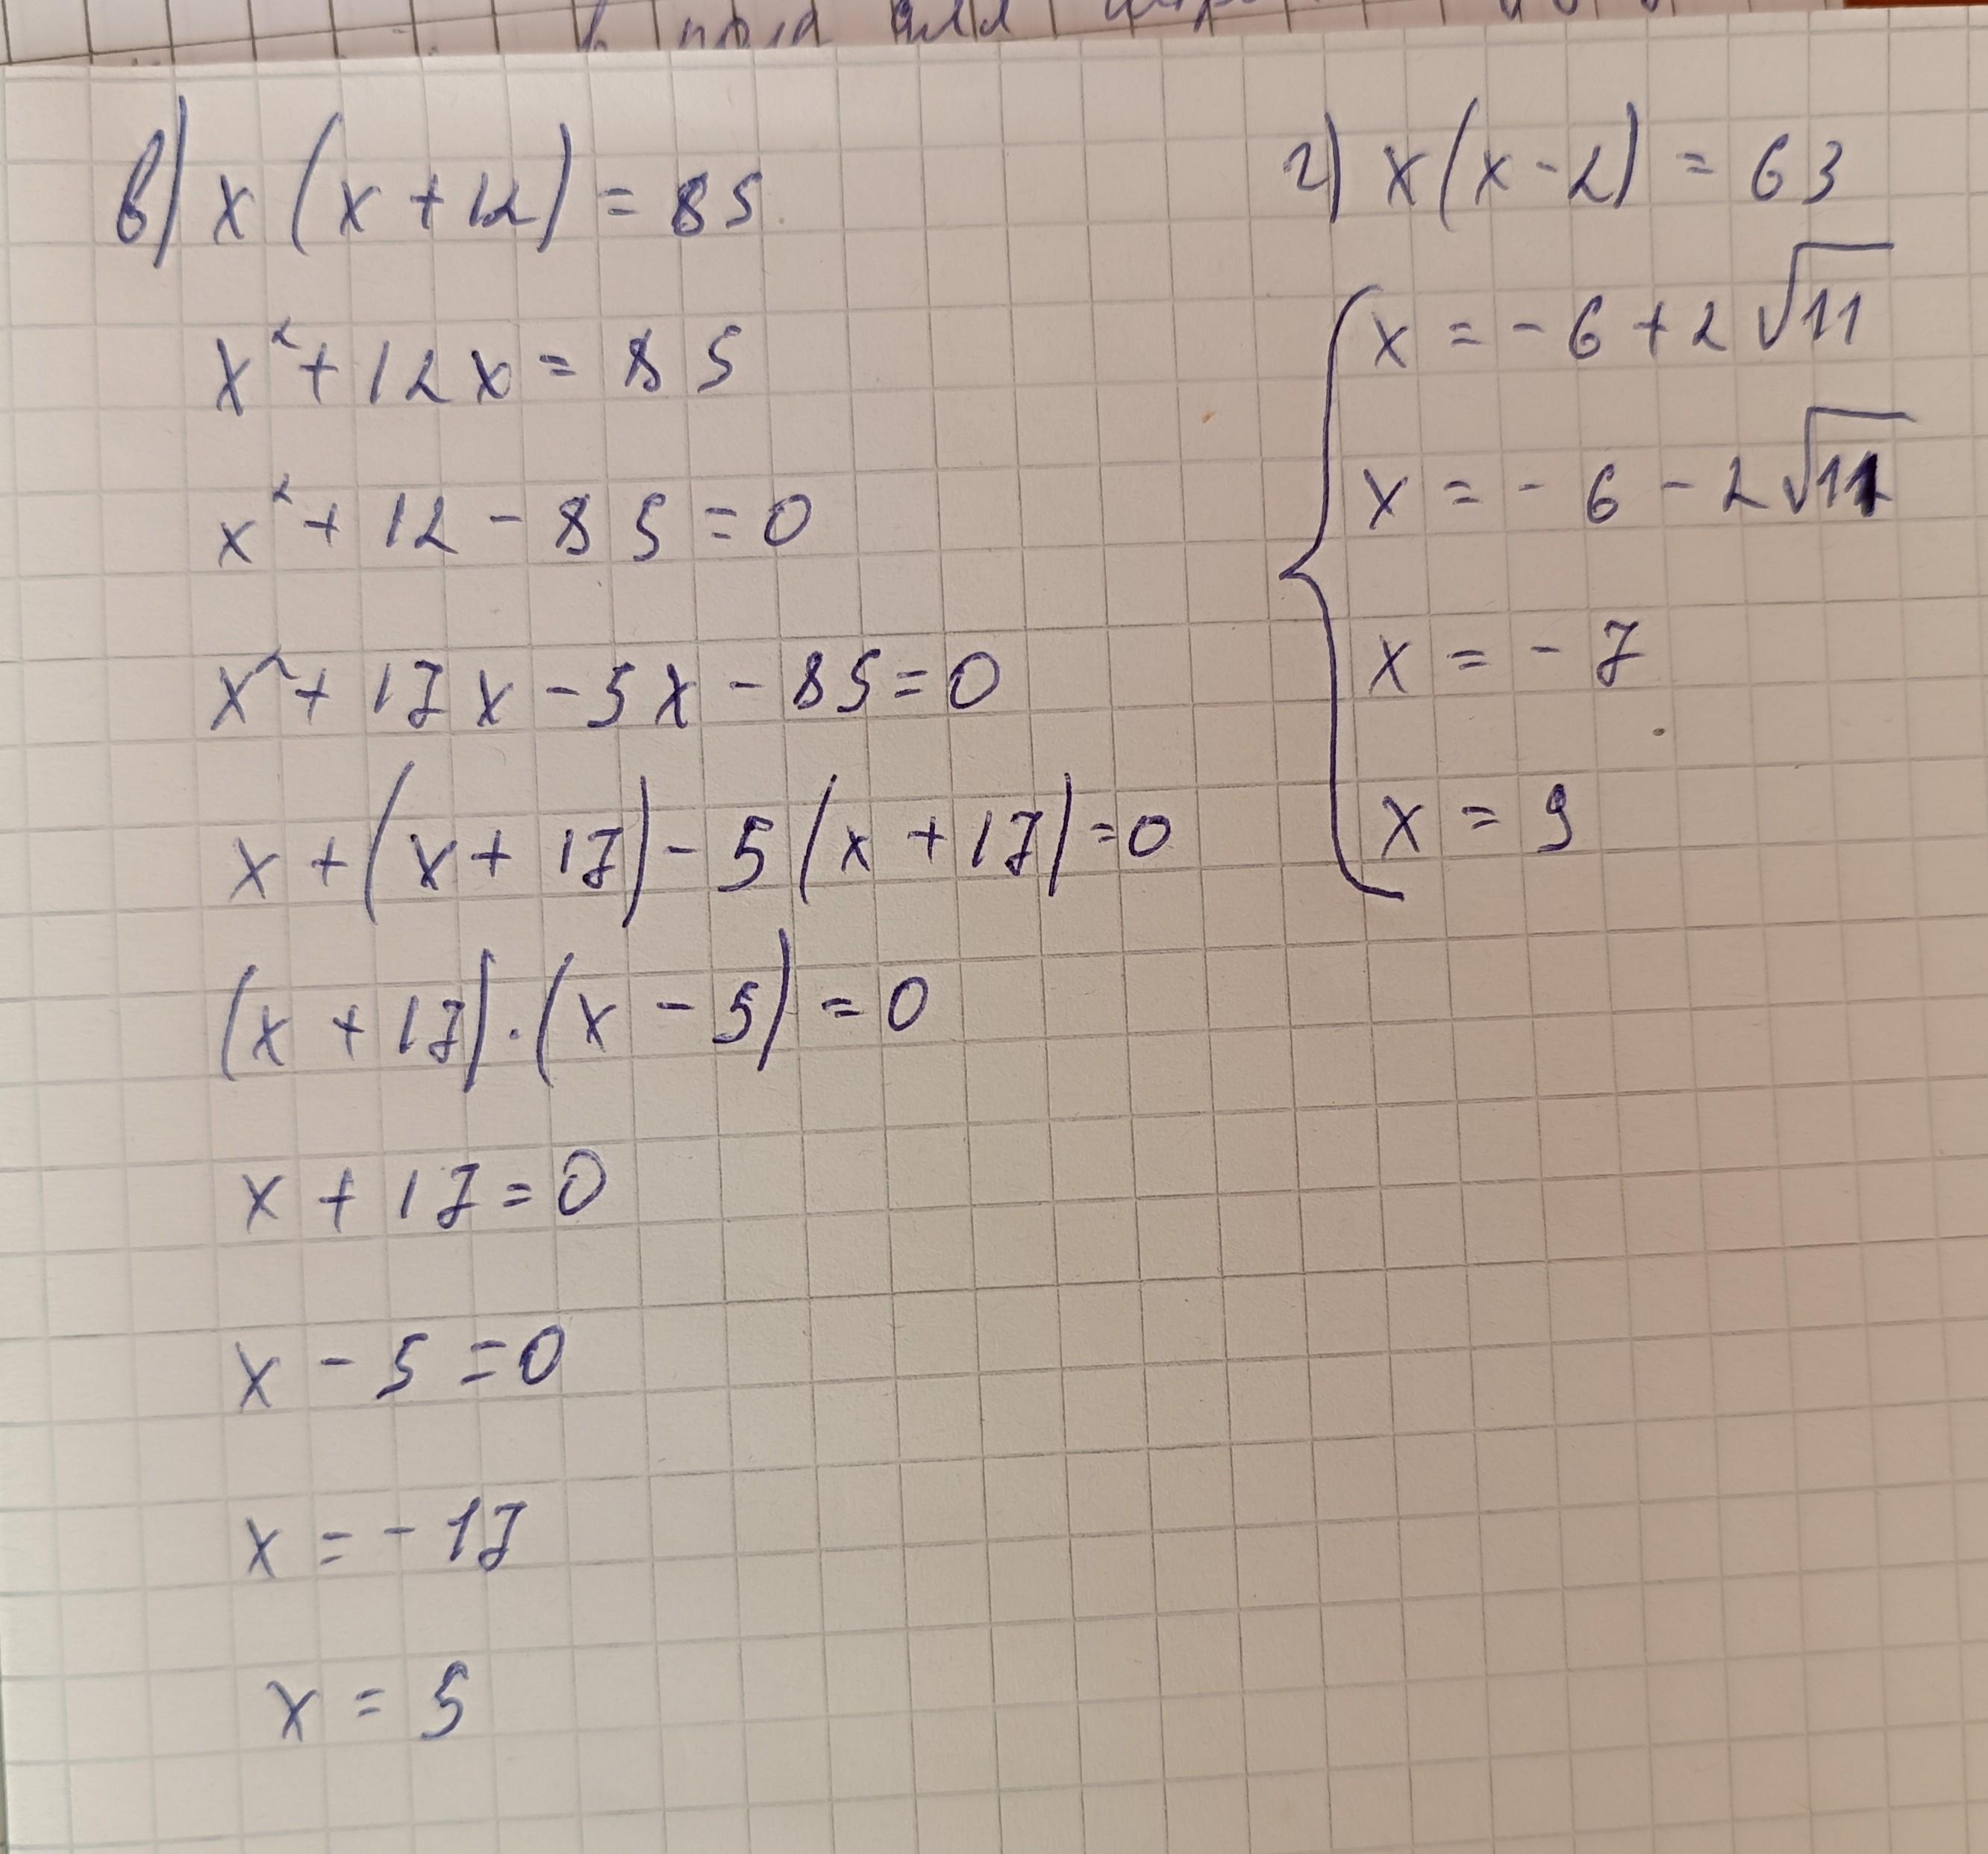 в) x (x + 12) = 85
x² + 12x = 85
x² + 12 - 85 = 0
x² + 17x - 5x - 85 = 0
x + (x + 17) - 5 (x + 17) = 0
(x + 17) · (x - 5) = 0
x + 17 = 0
x - 5 = 0
x = - 17
x = 5
г) x (x - 2) = 63
x = - 6 + 2√11
x = - 6 - 2√11
x = - 7
x = 9